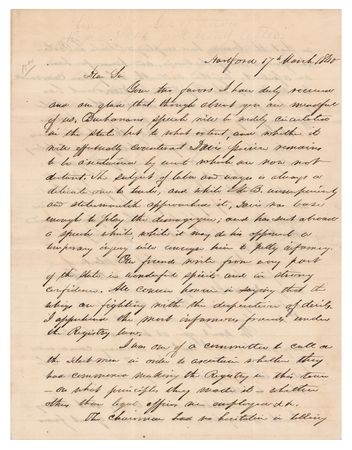 Hartford 17th March, 1840
Dear Sir
Your two favors I have duly received
and am glad that though absent you are mindful
of us. Buchanan's speech will be widely circulated
in the state but to what extent, and whether it
will effectually counteract Davis' poison remains
to be ascertained by events which are now not
distant. The subject of labor and wages is always a
delicate one to touch, and while B. unsuspiciously
and statesmanlike approached it, Davis was base
enough to play the demagogue; and has sent abroad
a speech which, while it may do his opponent a
temporary injury will consign him to lasting infamy.
Our friends write from every part
of the state in wonderful spirits and in strong
confidence. All concur however in saying that the
whigs are fighting with the desperation of devils.
I apprehend the most infamous frauds under
the Registry law.
I am one of a committee to call on
the Select men in order to ascertain whether they
had commenced making the Registry in this town
on what principles they made it – whether
other than legal officers were employed &c.
The chairman had no hesitation in telling